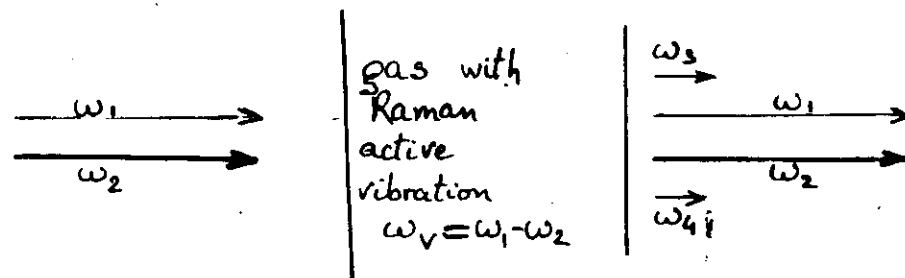 ω₁
ω₂
gas with
Raman
active
vibration
ω_v = ω₁-ω₂
ω₃
ω₁
ω₂
ω₄